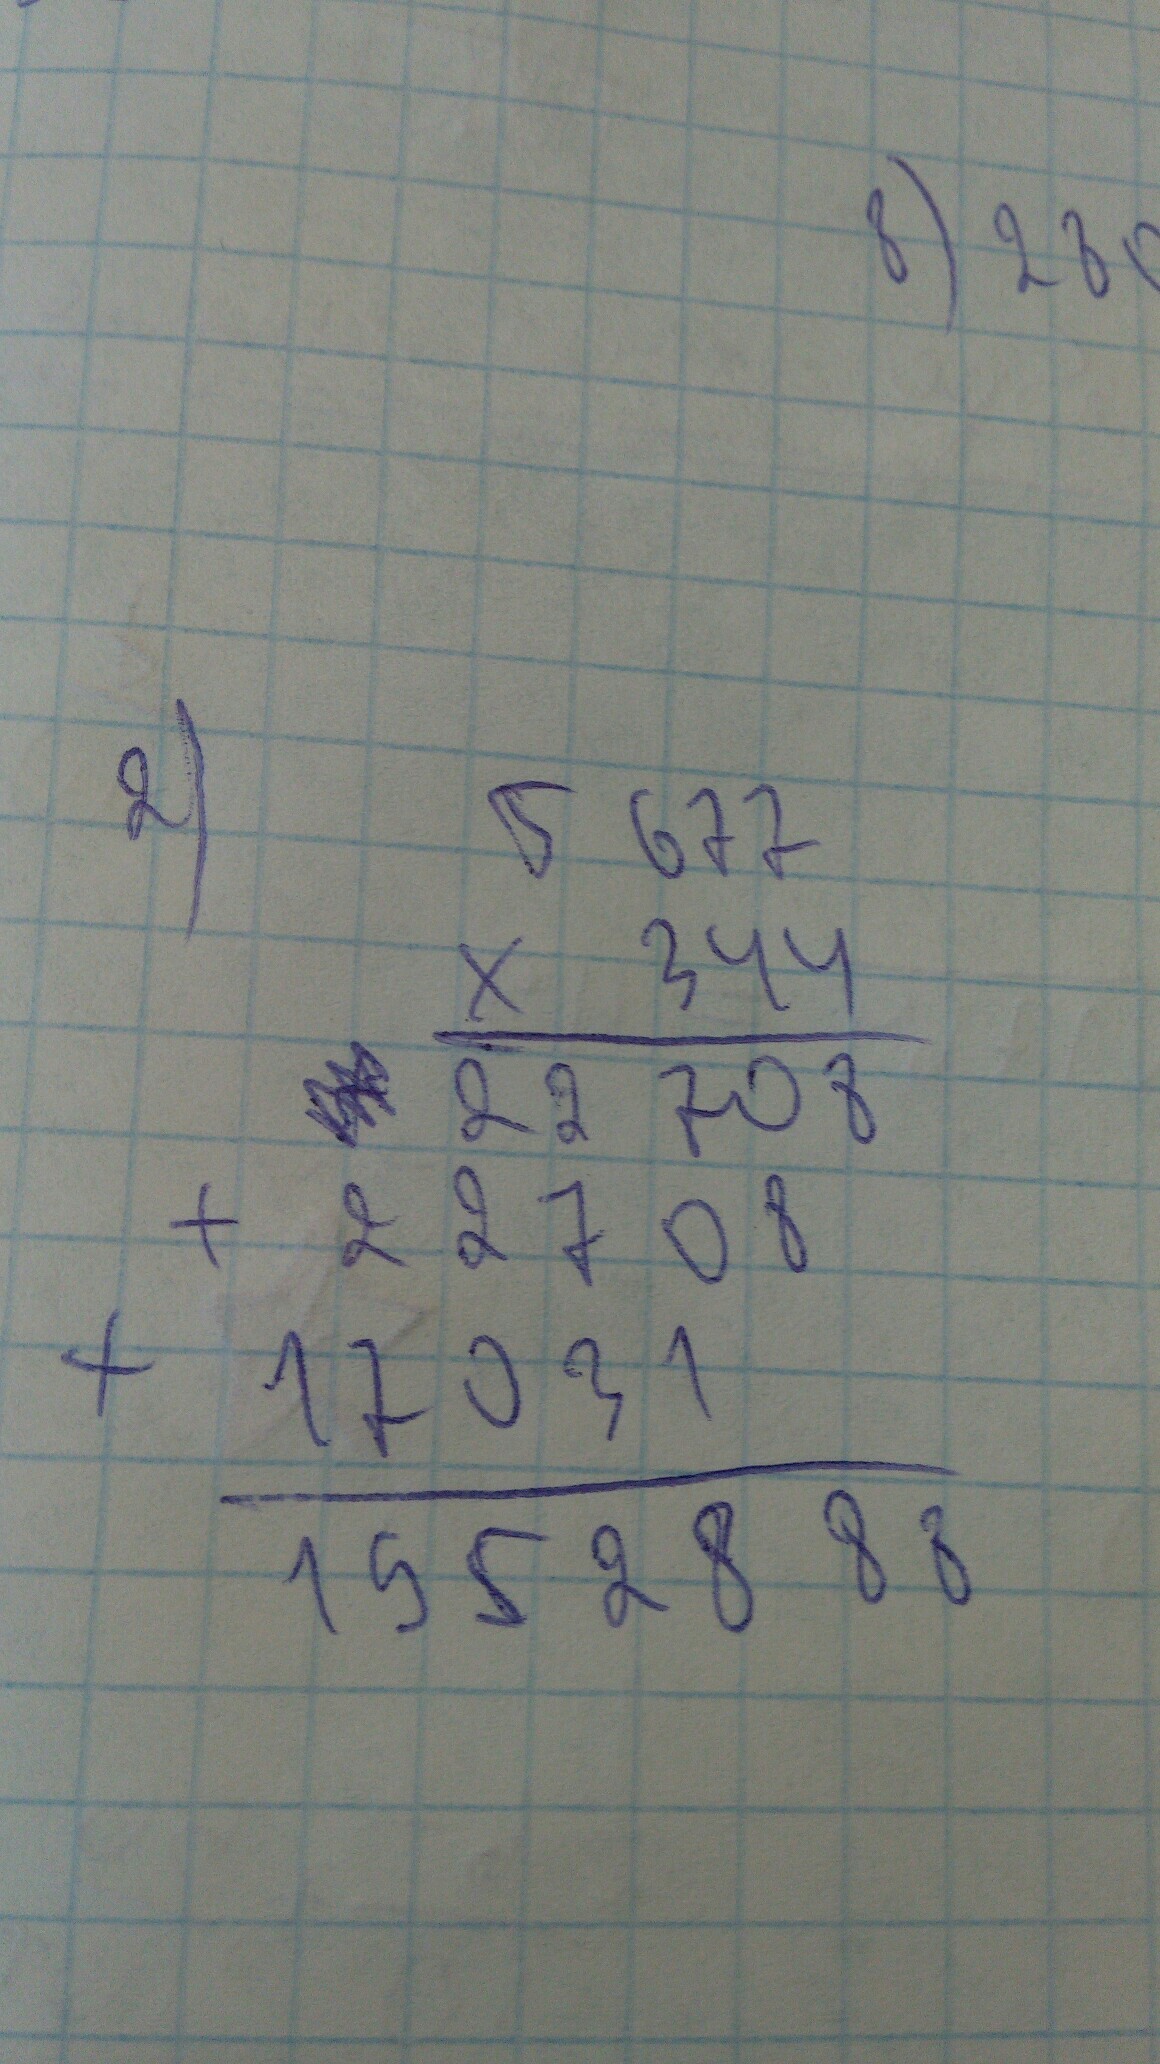 8) 230
2)
5 677
x 344
22 708
+ 22708
+ 17031
1952888